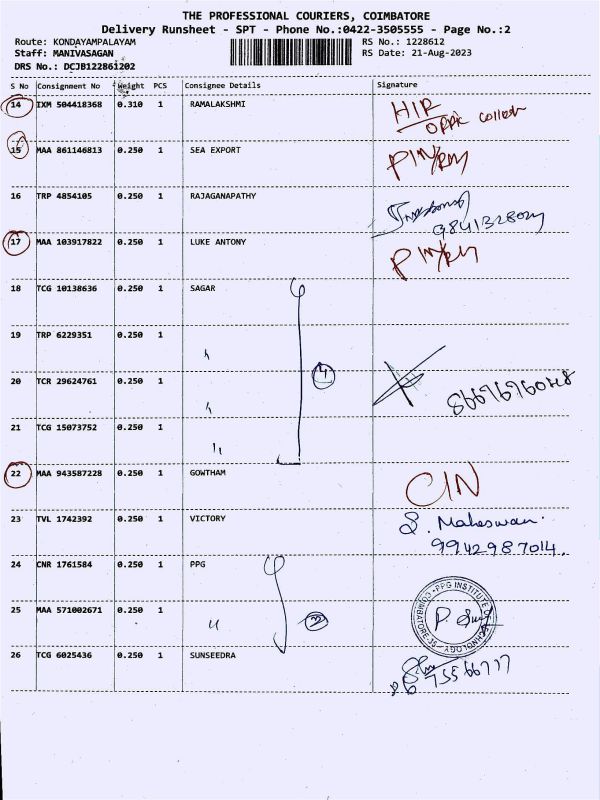 THE PROFESSIONAL COURIERS, COIMBATORE
Delivery Runsheet - SPT - Phone No.:0422-3505555 - Page No.:2
Route: KONDAYAMPALAYAM RS No.: 1228612
Staff: MANIVASAGAN RS Date: 21-Aug-2023
DRS No.: DCJB122861202
S No Consignment No Weight PCS Consignee Details Signature
14 IXM 504418368 0.310 1 RAMALAKSHMI
15 MAA 861146813 0.250 1 SEA EXPORT
16 TRP 4854105 0.250 1 RAJAGANAPATHY
17 MAA 103917822 0.250 1 LUKE ANTONY
18 TCG 10138636 0.250 1 SAGAR
19 TRP 6229351 0.250 1
4
20 TCR 29624761 0.250 1
21 TCG 15073752 0.250 1
22 MAA 943587228 0.250 1 GOWTHAM
23 TVL 1742392 0.250 1 VICTORY S. Maheswari
9942987014
24 CNR 1761584 0.250 1 PPG
PPG INSTITUTE TECHNOLOGY COIMBATORE-35
25 MAA 571002671 0.250 1
26 TCG 6025436 0.250 1 SUNSEEDRA